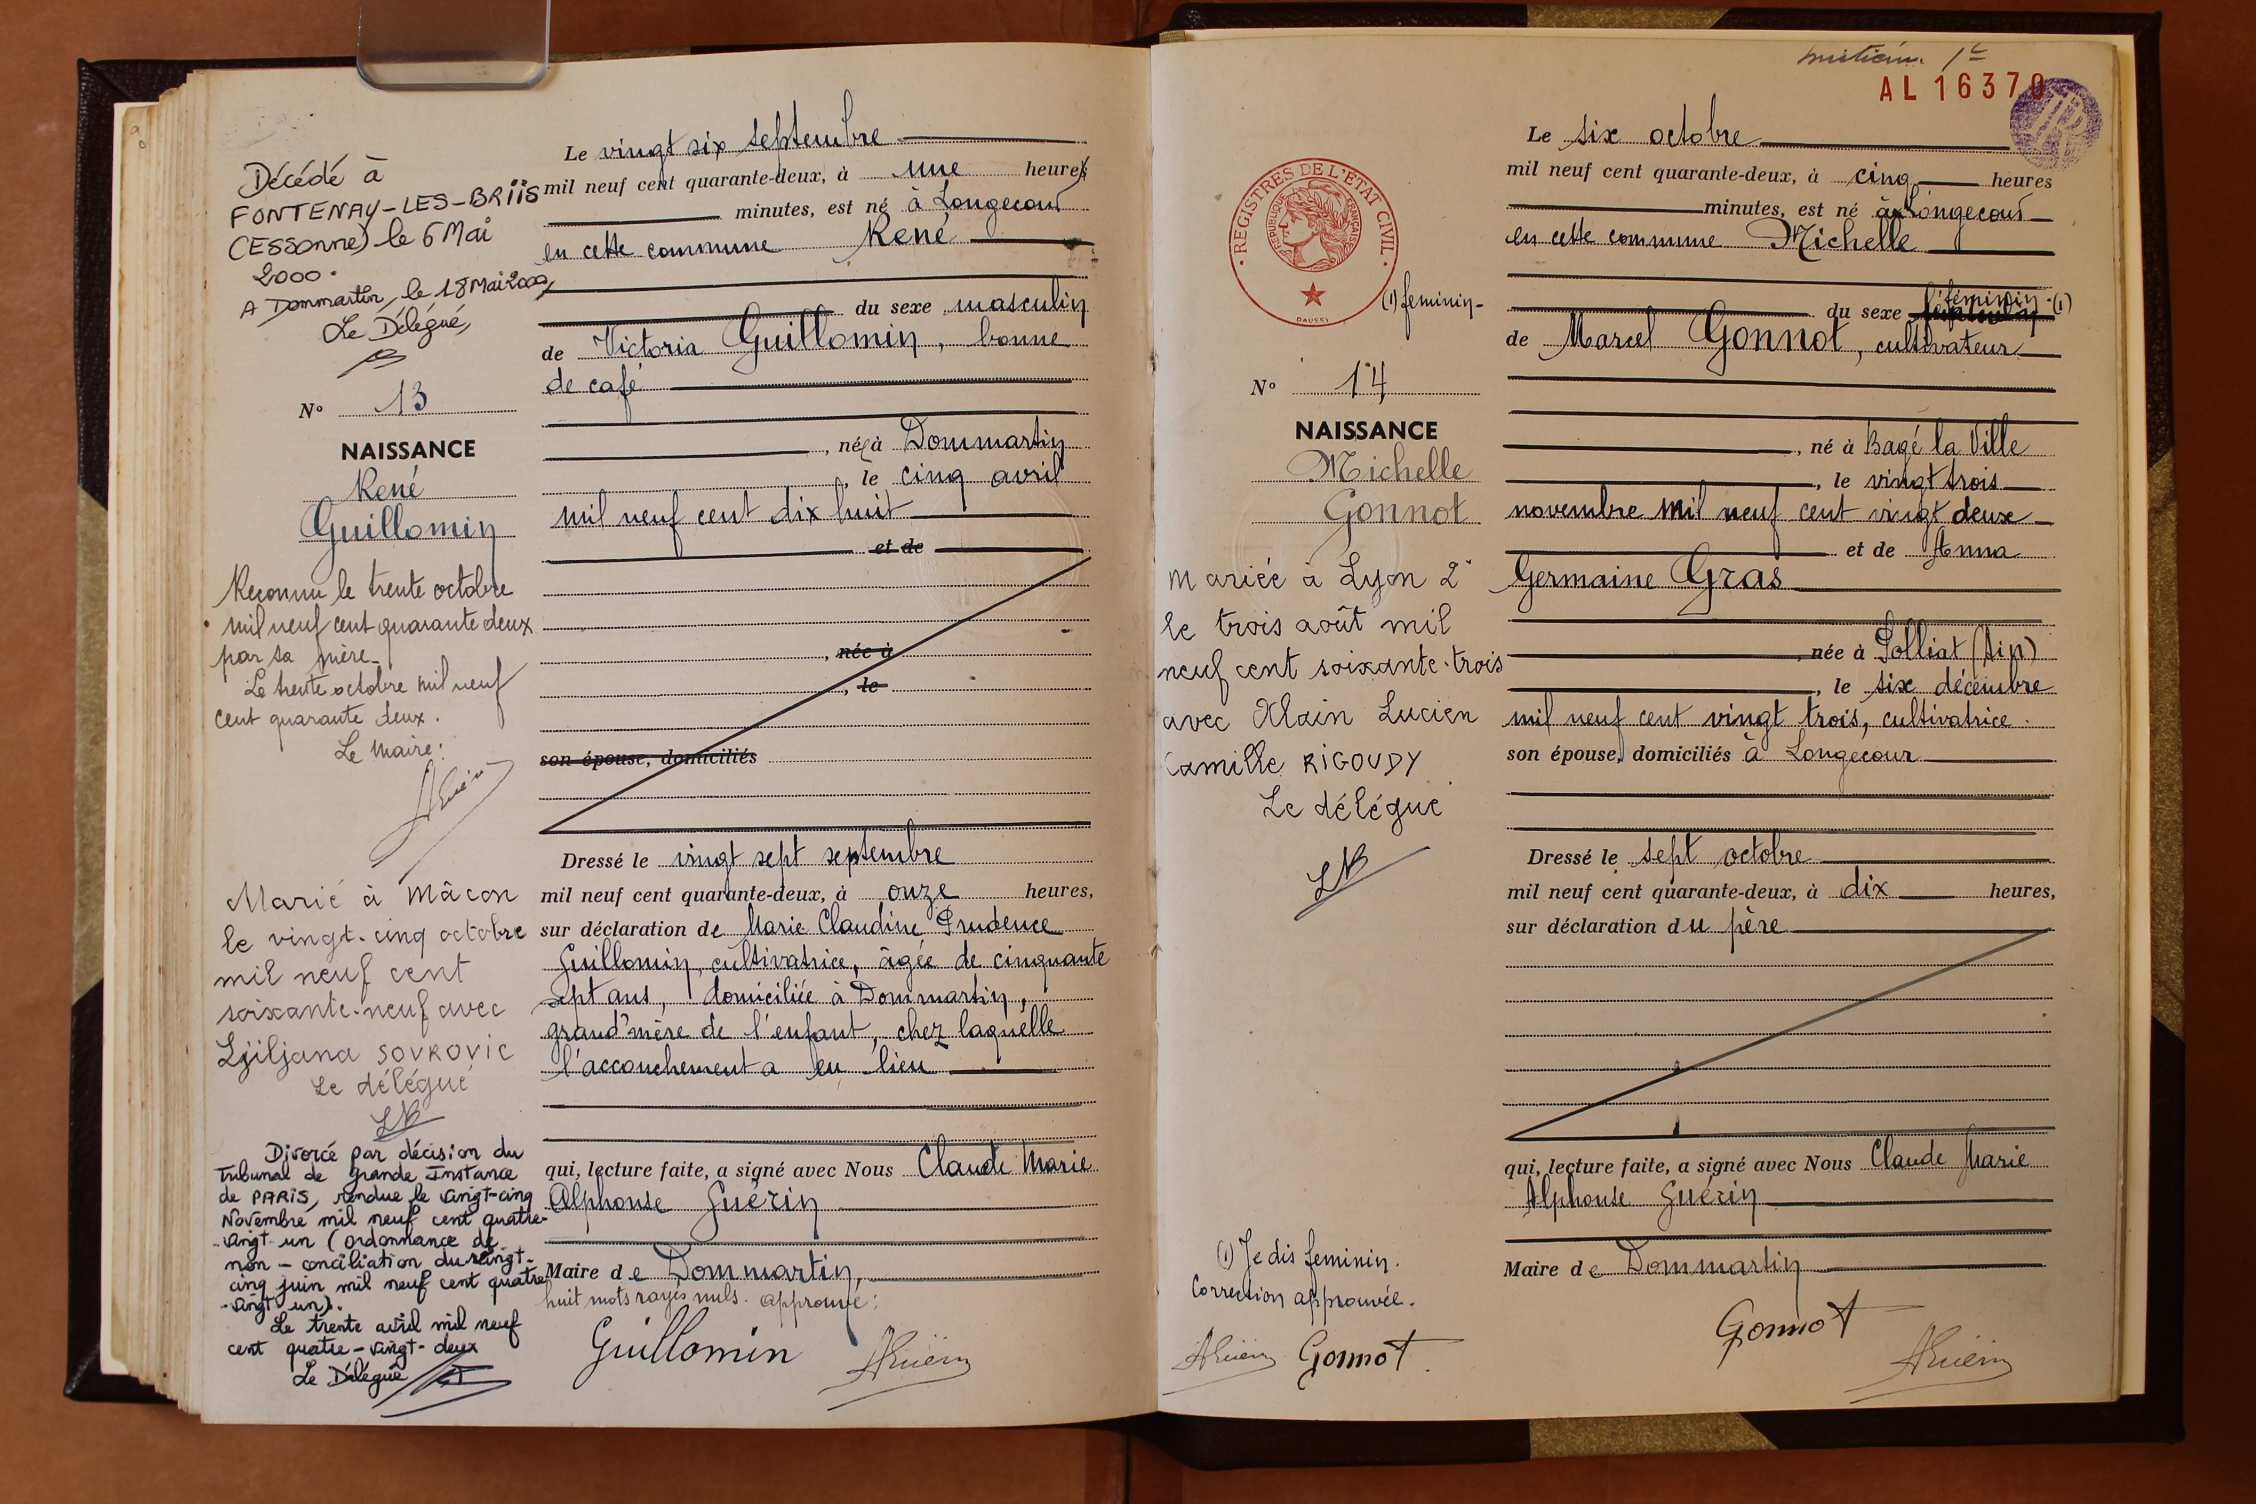 Décédé à
FONTENAY-LES-BRIIS
(Essonne) le 6 Mai
2000.
A Dommartin, le 18 Mai 2000,
Le Délégué,
N° 13
NAISSANCE
René
Guillomin
Reconnu le trente octobre
mil neuf cent quarante deux
par sa mère.
Le trente octobre mil neuf
cent quarante deux.
Le Maire:
AGuérin
Marié à Mâcon
le vingt-cinq octobre
mil neuf cent
soixante-neuf avec
Ljiljana SOVROVIC
Le délégué
Divorcé par décision du
Tribunal de Grande Instance
de PARIS, rendue le vingt-cinq
Novembre mil neuf cent quatre-
-vingt-un (ordonnance de
non-conciliation du vingt-
cinq juin mil neuf cent quatre
-vingt un).
Le trente avril mil neuf
cent quatre-vingt-deux
Le Délégué
Le vingt six septembre
mil neuf cent quarante-deux, à une heures
minutes, est né à Longecour
en cette commune René
du sexe masculin
de Victoria Guillomin, bonne
de café
, née à Dommartin
, le cinq avril
mil neuf cent dix huit
et de
, née à
, le
son épouse, domiciliés
Dressé le vingt sept septembre
mil neuf cent quarante-deux, à onze heures,
sur déclaration de Marie Claudine Prudence
Guillomin, cultivatrice, âgée de cinquante
sept ans, domiciliée à Dommartin,
grand'mère de l'enfant, chez laquelle
l'accouchement a eu lieu
qui, lecture faite, a signé avec Nous Claude Marie
Alphonse Guérin
Maire de Dommartin,
huit mots rayés nuls. approuvé:
Guillomin AGuérin
1e
AL 16370
REGISTRES DE L'ÉTAT CIVIL
RÉPUBLIQUE FRANÇAISE
DAUSSY
(1) feminin-
N° 14
NAISSANCE
Michelle
Gonnot
Mariée à Lyon 2°
le trois août mil
neuf cent soixante-trois
avec Alain Lucien
Camille RIGOUDY
Le délégué
(1) Je dis feminin.
Correction approuvée.
AGuérin Gonnot
Le six octobre
mil neuf cent quarante-deux, à cinq heures
minutes, est né à Longecour
en cette commune Michelle
du sexe féminin (1)
de Marcel Gonnot, cultivateur
, né à Bagé la Ville
, le vingt trois
novembre mil neuf cent vingt deux
et de Anna
Germaine Gras
, née à Polliat (Ain)
, le six décembre
mil neuf cent vingt trois, cultivatrice.
son épouse, domiciliés à Longecour
Dressé le sept octobre
mil neuf cent quarante-deux, à dix heures,
sur déclaration du père
qui, lecture faite, a signé avec Nous Claude Marie
Alphonse Guérin
Maire de Dommartin
Gonnot AGuérin